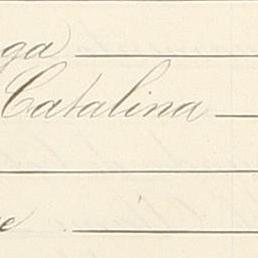 ga
Catalina
e